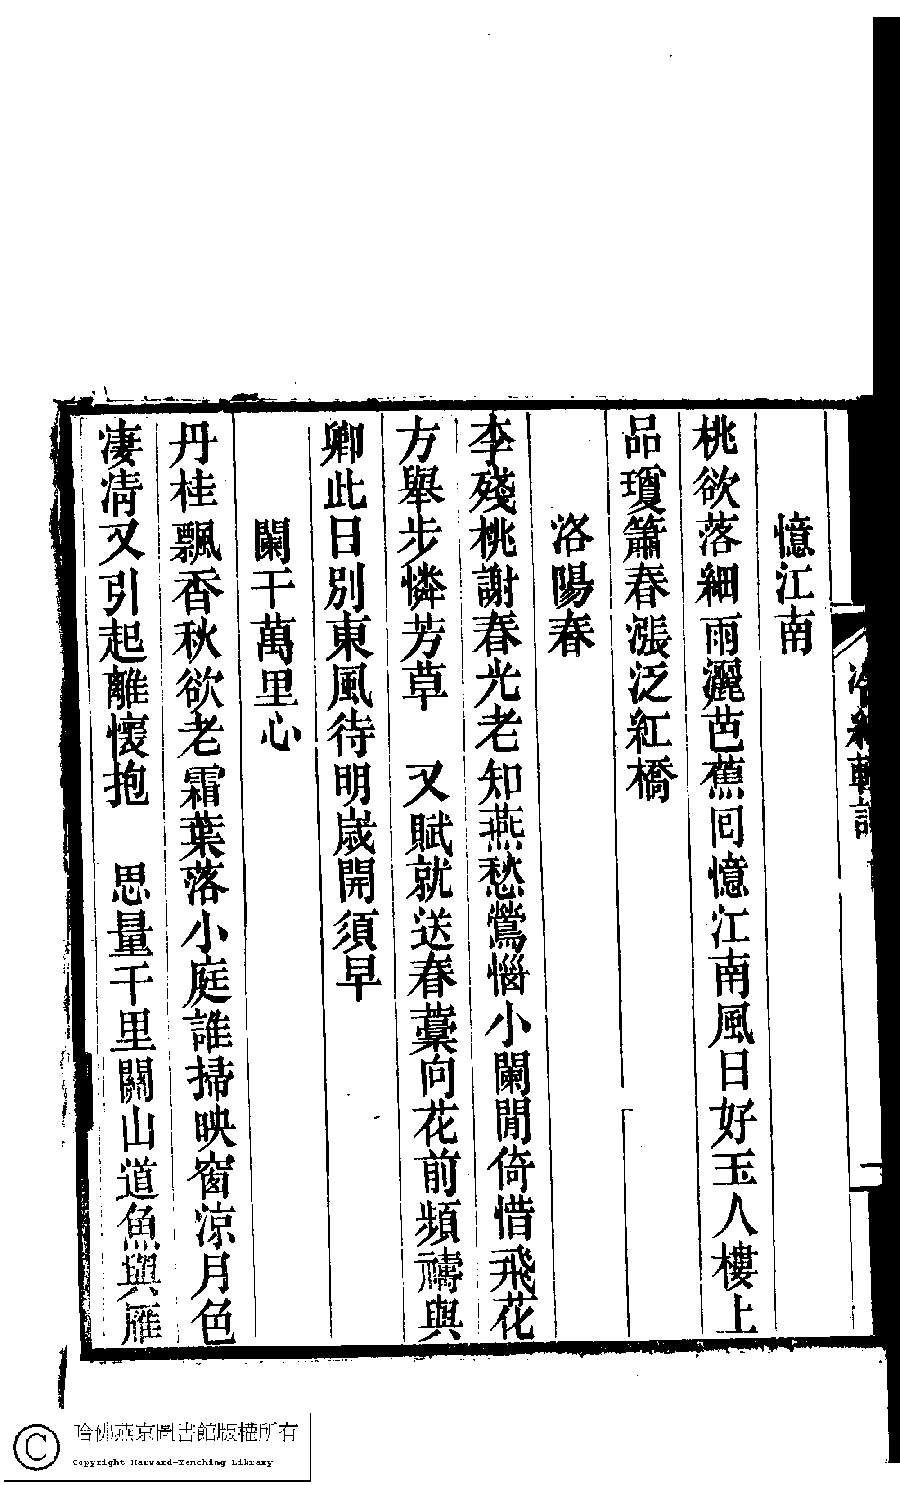 憶江南
桃欲落細雨灑芭蕉囘憶江南風日好玉人樓上
品瓊簫春漲泛紅橋
洛陽春
李殘桃謝春光老知燕愁鶯惱小闌閒倚惜飛花
方舉步憐芳草　又賦就送春藁向花前頻禱與
卿此日別東風待明歲開須早
闌干萬里心
丹桂飄香秋欲老霜葉落小庭誰掃映窗凉月色
凄淸又引起離懷抱　思量千里關山道魚與雁
二
哈佛燕京圖書館版權所有
Copyright Harvard-Yenching Library